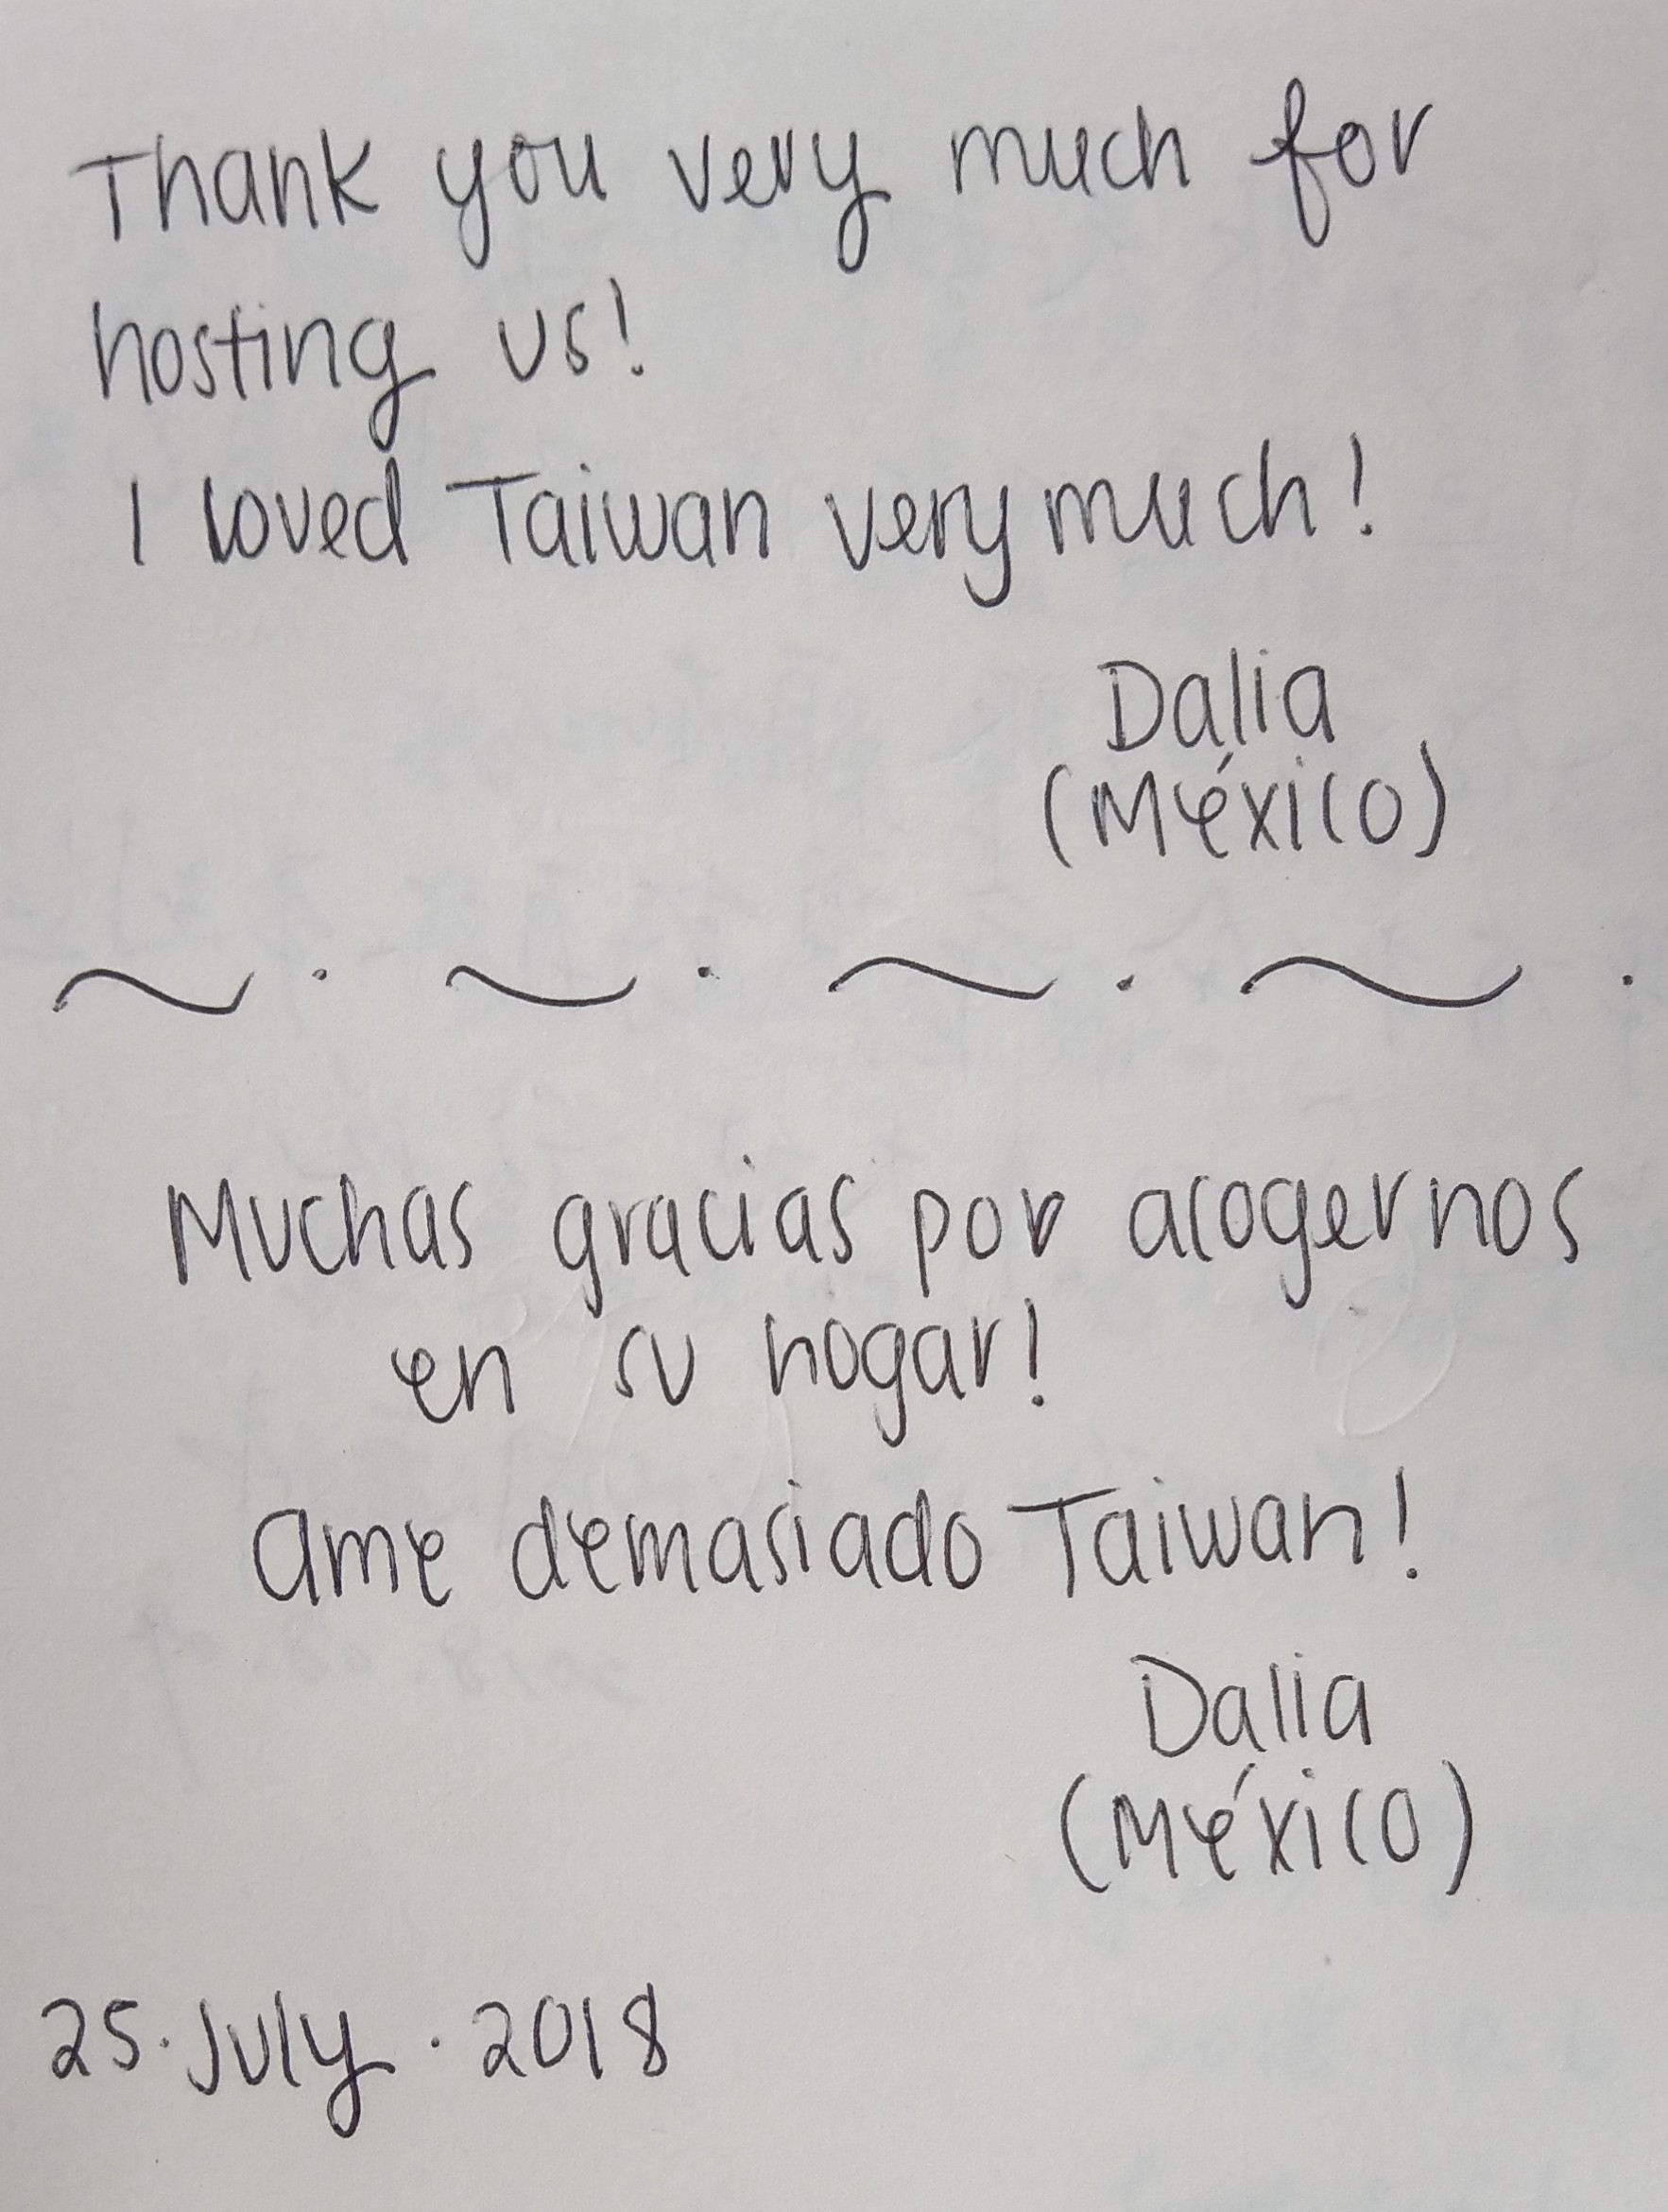 Thank you very much for
hosting us!
I loved Taiwan very much!
Dalia
(México)
~ . ~ . ~ . ~ .
Muchas gracias por acogernos
en su hogar!
Ame demasiado Taiwan!
Dalia
(México)
25. July. 2018